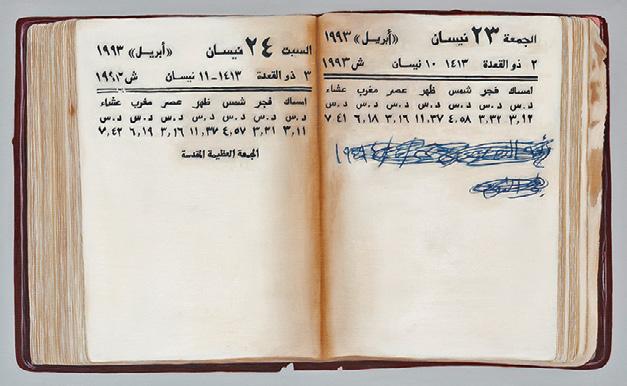 الجمعة ٢٣ نيسان «أبريل» ١٩٩٣
٢ ذو القعدة ١٤١٣ ١٠ نيسان ش ١٩٩٣
امساك فجر شمس ظهر عصر مغرب عشاء
د.س د.س د.س د.س د.س د.س د.س
٣,١٢ ٣,٣٢ ٤,٥٨ ١١,٣٧ ٣,١٦ ٦,١٨ ٧,٤١
السبت ٢٤ نيسان «أبريل» ١٩٩٣
٣ ذو القعدة ١٤١٣-١١ نيسان ش ١٩٩٣
امساك فجر شمس ظهر عصر مغرب عشاء
د.س د.س د.س د.س د.س د.س د.س
٣,١١ ٣,٣١ ٤,٥٧ ١١,٣٧ ٣,١٦ ٦,١٩ ٧,٤٢
الجمعة العظيمة المقدسة